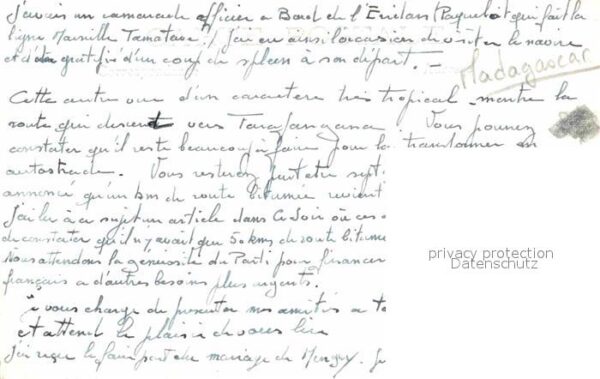 J'avais un camarade officier à Bord de l'Éridan (Paquebot qui fait la
ligne Marseille Tamatave.) J'ai eu ainsi l'occasion de visiter le navire
et d'être gratifié d'un coup de spleen à son départ. —
Madagascar
Cette autre vue d'un caractère très tropical montre la
route qui descend vers . Vous pouvez
constater qu'il reste beaucoup à faire pour la transformer en
autostrade. Vous resterez peut être
annoncé qu'un km de route bitumée revient
J'ai lu à ce sujet un article dans Ce Soir où
de constater qu'il n'y avait que 50 kms de route
Nous attendons la génerosité du Parti pour financer
français a d'autres besoins plus urgents.
Je vous charge de presenter mes amitiés a
et attend le plaisir de vous lire
J'ai reçu le faire part du mariage de
privacy protection
Datenschutz